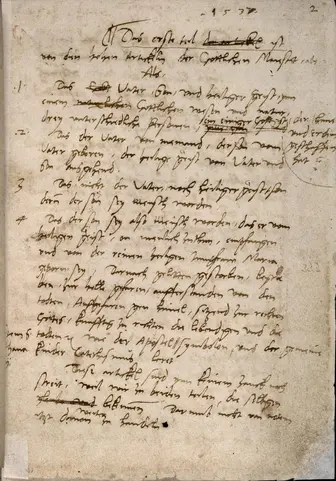 1537 2
Das erste teil ist
von den hohen artickeln der Gottlichen Maiestet
Als
1. Das Vater Son und heiliger geist ynn
einem Gottlichen wesen und natur
drey unterschiedliche personen ein einiger Gott ist der himel
2. Das der Vater von niemand, der son vom und erden
Vater geborn, der heilige geist vom Vater und geschaffen
Son ausgehend hat
3 Das nicht der Vater noch heiliger geist son
dern der son sey mensch worden
4 Das der son sey also mensch worden, das er vom
heiligen geist, on menlich zuthun, empfangen
und von der reinen heiligen Jungfraw Maria
geborn sey Darnach gelidden gestorben, begra
ben, zur helle gefaren, aufferstanden von den
todten, Auffgefaren gen himel, sitzend zur rechten
Gottes, kunfftig zu richten die lebendigen und die
todten wie der Apostel symbolon, und der gemeine
kinder Catechismus leret
Diese artikel sind ynn keinem zanck noch
streit, weil wir zu beiden teilen, die selbigen
bekennen Darumb nicht von noten
itzt davon weiter zu handeln